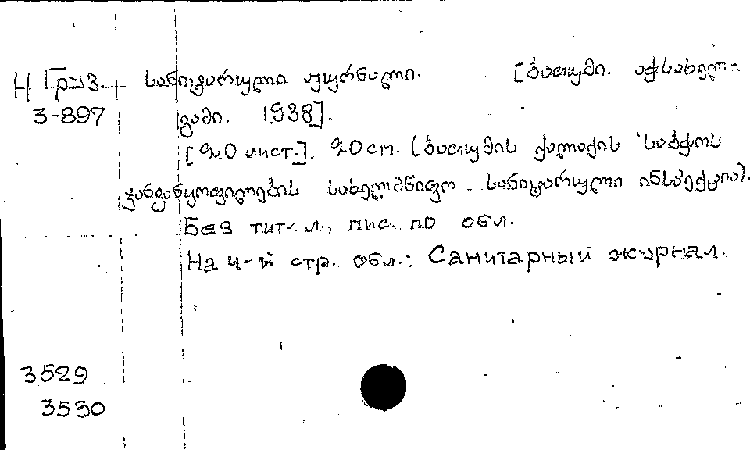 Н Груз. სანიტარული ჟურნალი. [ბათუმი. აჭსახელ-
3-897 გამი. 1938].
[20 лист.]. 20 cm. (ბათუმის ქალაქის საბჭოს
ჯანდანყოფილების სახელმწიფო სანიტარული ინსპექცია).
Без тит. л., пис. по обл.
На 4-й стр. обл.: Санитарный журнал.
3529
3530